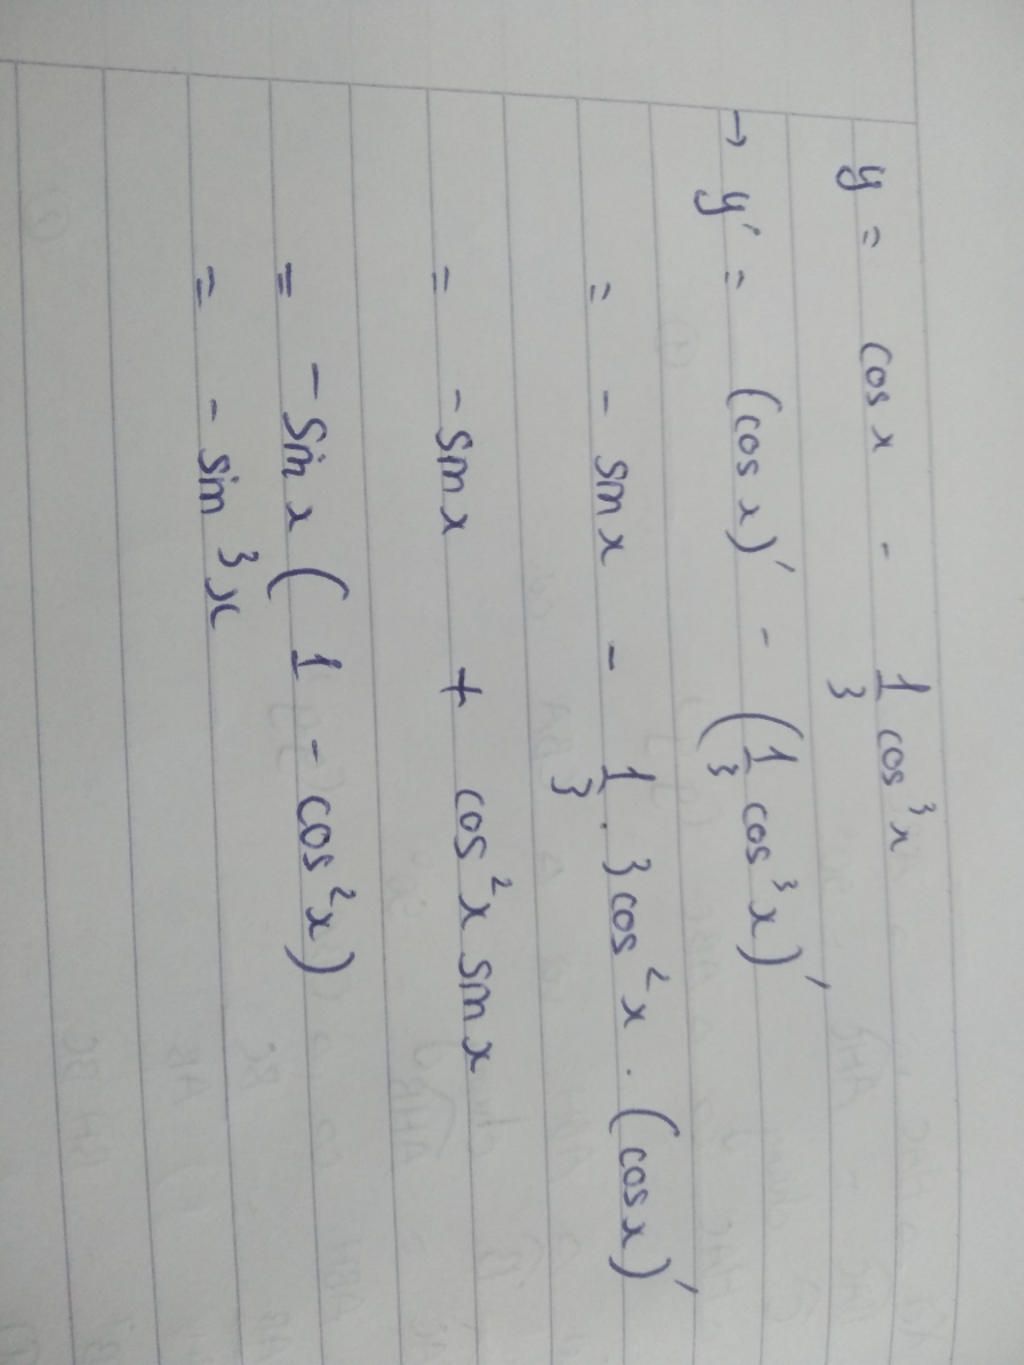 y = cos x - 1/3 cos³x
→ y' = (cos x)' - (1/3 cos³x)'
= - sin x - 1/3 . 3cos²x . (cos x)'
= - sin x + cos²x sin x
= - sin x ( 1 - cos²x )
= - sin³x